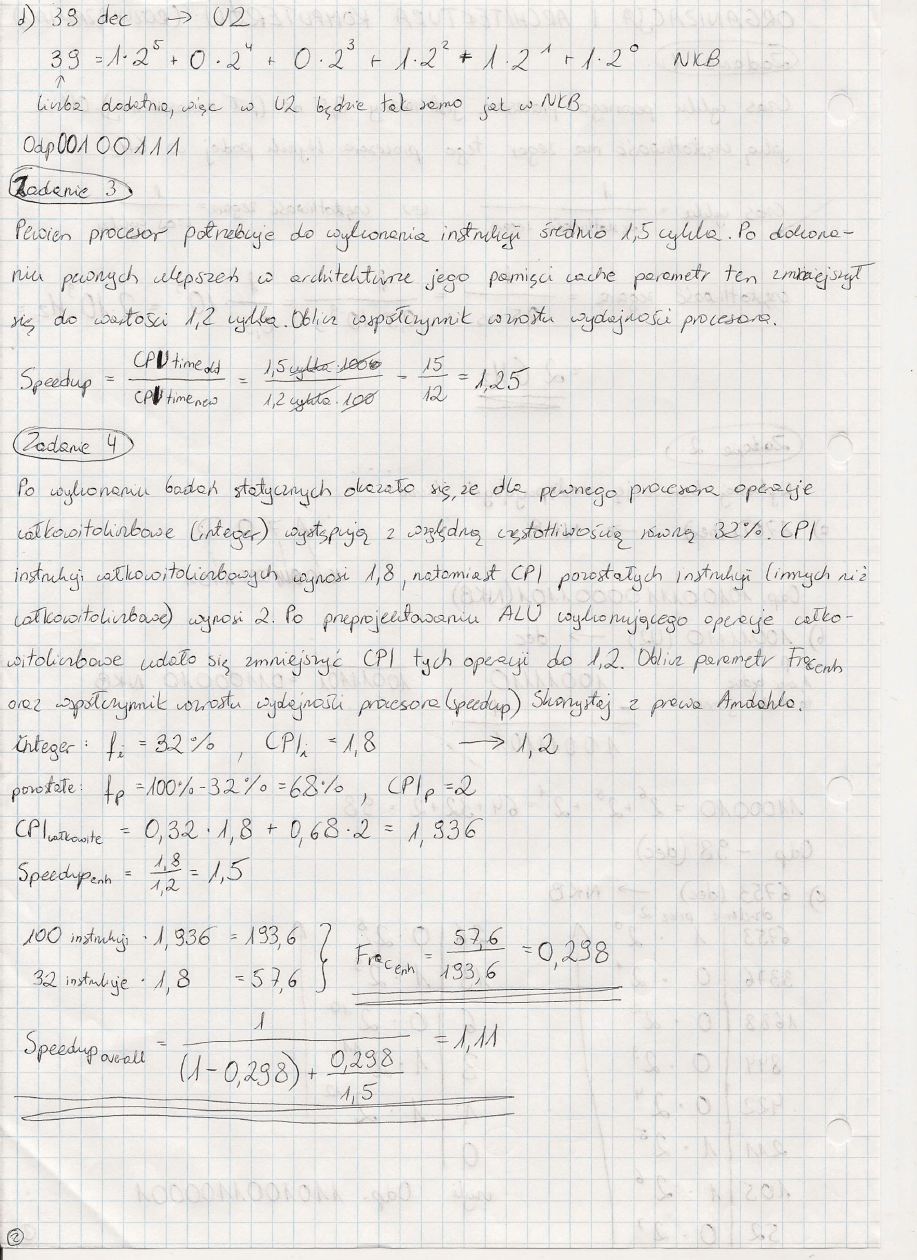 d) 39 dec → U2
39 = 1·2⁵ + 0·2⁴ + 0·2³ + 1·2² + 1·2¹ + 1·2⁰ NKB
liczba dodatnia, więc w U2 będzie tak samo jak w NKB
Odp 00100111
Zadanie 3
Pewien procesor potrzebuje do wykonania instrukcji średnio 1,5 cykla. Po dokona-
niu pewnych ulepszeń w architekturze jego pamięci cache parametr ten zmniejszył
się do wartości 1,2 cykla. Oblicz współczynnik wzrostu wydajności procesora.
Speedup = CPU time old / CPU time new = 1,5 cykla · 100 / 1,2 cykla · 100 = 15/12 = 1,25
Zadanie 4
Po wykonaniu badań statycznych okazało się, że dla pewnego procesora operacje
całkowitoliczbowe (integer) występują z względną częstotliwością równą 32%. CPI
instrukcji całkowitoliczbowych wynosi 1,8, natomiast CPI pozostałych instrukcji (innych niż
całkowitoliczbowe) wynosi 2. Po preprojektowaniu ALU wykonującego operacje całko-
witoliczbowe udało się zmniejszyć CPI tych operacji do 1,2. Oblicz parametr Frac enh
oraz współczynnik wzrostu wydajności procesora (speedup) Skorzystaj z prawa Amdahla.
integer: fi = 32%, CPIi = 1,8 → 1,2
pozostałe: fp = 100% - 32% = 68%, CPIp = 2
CPI całkowite = 0,32 · 1,8 + 0,68 · 2 = 1,936
Speedup enh = 1,8/1,2 = 1,5
100 instrukcji · 1,936 = 193,6
32 instrukcje · 1,8 = 57,6 } Frac enh = 57,6/193,6 = 0,298
Speedup overall = 1 / ((1-0,298) + 0,298/1,5) = 1,11
2